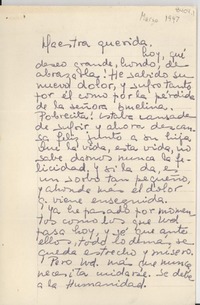 Marzo 1947
Maestra querida,
hoy, qué
deseo grande, hondo! de
abrazarla! He sabido su
nuevo dolor, y sufro tanto
por él como por la pérdida
de la señora Emelina.
Pobrecita! Estaba cansada
de sufrir y ahora descan-
sa feliz junto a su hija.
Que la vida, esta vida, no
sabe darnos nunca la fe-
licidad, y si la da, en
un sorbo tan pequeño,
y ahonda más el dolor
q. viene enseguida.
Ya he pasado por momen-
tos como los que Ud.
pasa hoy, y sé que ante
ellos, todo lo demás se
queda estrecho y mísero.
Pero Ud. más que nunca
necesita cuidarse. Se debe
a la Humanidad.